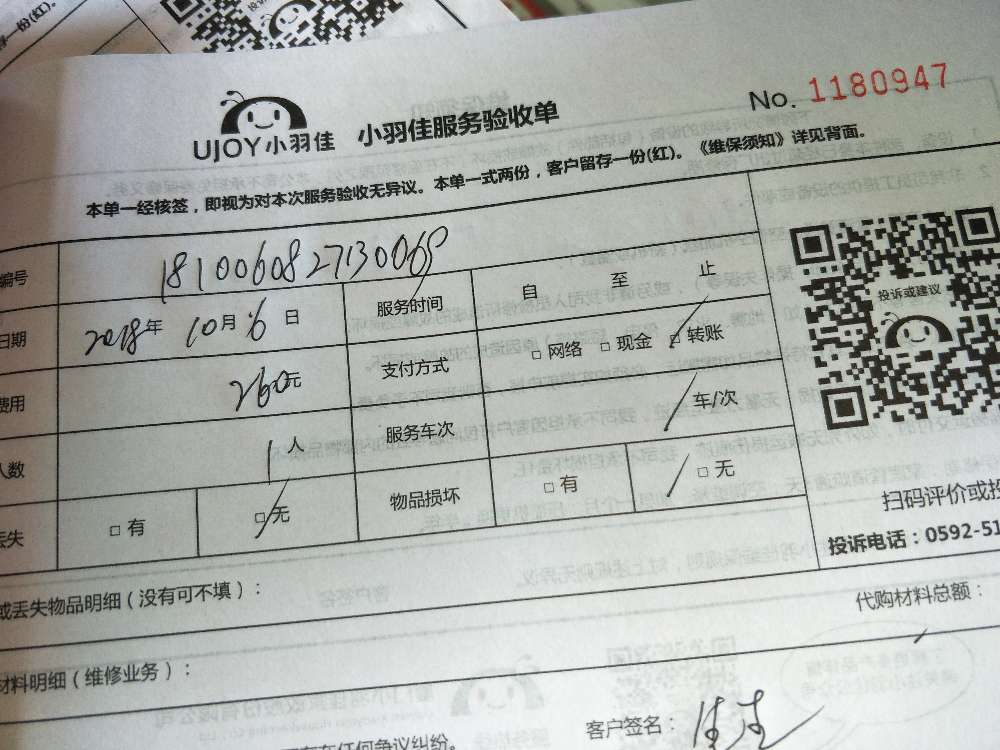 份(红)。
UJOY小羽佳 小羽佳服务验收单 No. 1180947
本单一经核签，即视为对本次服务验收无异议。本单一式两份，客户留存一份(红)。《维保须知》详见背面。
编号 1810060827130069
日期 2018年 10月 6日 服务时间 自 至 止
费用 260元 支付方式 □ 网络 □ 现金 □ 转账
人数 1人 服务车次 车/次
丢失 □ 有 □ 无 物品损坏 □ 有 □ 无
投诉或建议
扫码评价或投
投诉电话：0592-51
或丢失物品明细（没有可不填）：
代购材料总额：
材料明细（维修业务）：
客户签名：
存在任何争议纠纷。